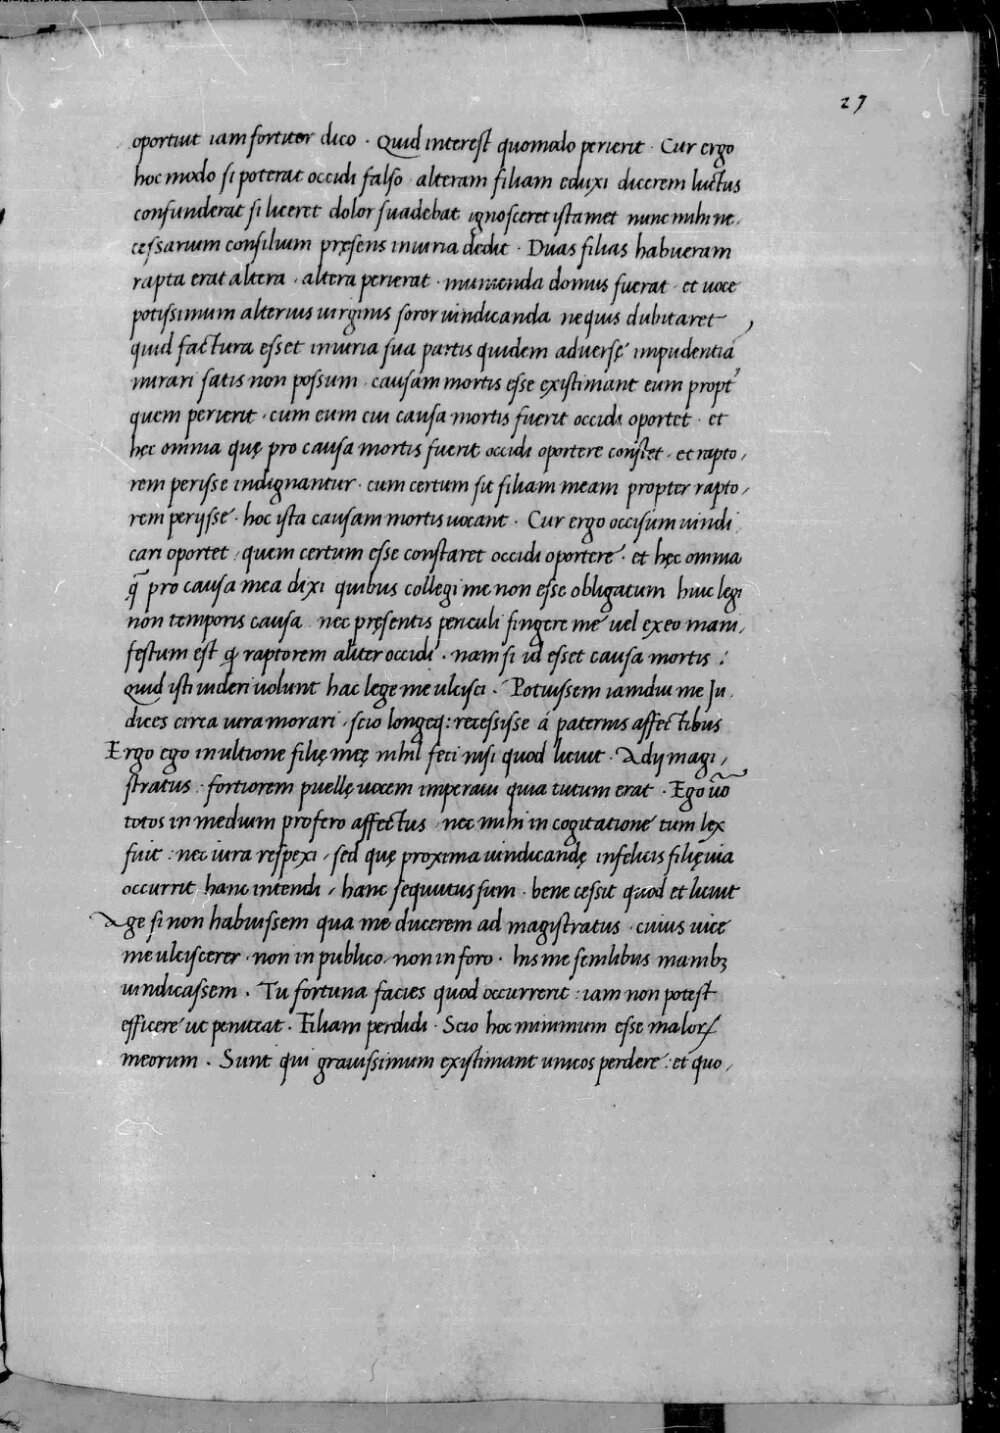 27
oportuit iam fortiter dico · Quid interest quomodo perierit · Cur ergo
hoc modo si poterat occidi falso alteram filiam eduxi dicerem luctus
confunderat si liceret dolor suadebat ignosceret ista met nunc mihi ne,
cessarium consilium pręsens iniuria dedit · Duas filias habueram
rapta erat altera · altera perierat · munienda domus fuerat · et uoce
potissimum alterius uirginis soror uindicanda ne quis dubitaret
quid factura esset iniuria sua partis quidem aduersę impudentiā
mirari satis non possum · causam mortis esse existimant eum propt'
quem perierit · cum eum cui causa mortis fuerit occidi oportet · et
hęc omnia quę pro causa mortis fuerit occidi oportere constet · et rapto,
rem perisse indignantur · cum certum sit filiam meam propter rapto,
rem perijsse · hoc ista causam mortis uocant · Cur ergo occisum uindi,
cari oportet · quem certum esse constaret occidi oportere · et hęc omnia
q̄ pro causa mea dixi quibus collegi me non esse obligatum huic legi
non temporis causa nec pręsentis periculi fingere me uel ex eo mani,
festum est q raptorem aliter occidi · nam si id esset causa mortis :
quid isti uideri uolunt hac lege me ulcisci · Potuissem iamdiu me Ju,
dices circa iura morari · scio longeq: recessisse á paternis affectibus
Ergo ego in ultione filię meę nihil feci nisi quod licuit · Adij magi,
stratus · fortiorem puellę uocem imperaui quia tutum erat · Ego ūo
totos in medium profero affectus nec mihi in cogitatione tum lex
fuit : nec iura respexi, sed quę proxima uindicandę infelicis filię uia
occurrit hanc intendi, hanc sequutus sum · bene cessit quod et licuit
Age si non habuissem qua me ducerem ad magistratus · cuius uice
me ulciscerer · non in publico, non in foro · his me senilibus manibꝫ
uindicassem · Tu fortuna facies quod occurrerit : iam non potest
efficere ut peniteat · Filiam perdidi · Scio hoc minimum esse maloꝝ
meorum · Sunt qui grauissimum existimant unicos perdere : et quo,